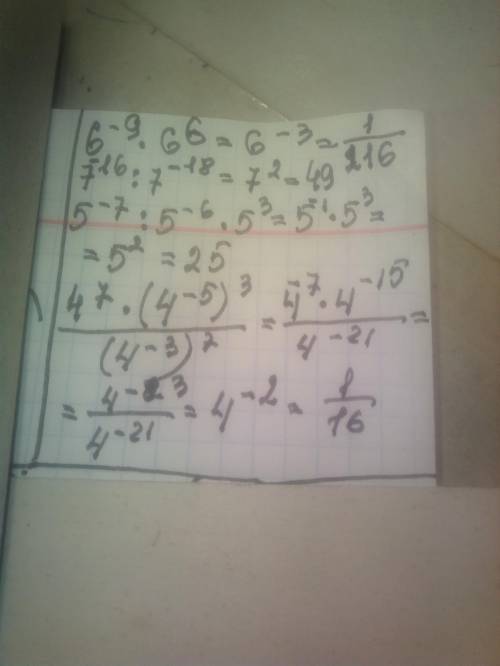 6^{-9} · 6^{6} = 6^{-3} = \frac{1}{216}
7^{-16} : 7^{-18} = 7^{2} = 49
5^{-7} : 5^{-6} · 5^{3} = 5^{-1} · 5^{3} =
= 5^{2} = 25
\frac{4^{7} · (4^{-5})^{3}}{(4^{-3})^{7}} = \frac{4^{-7} · 4^{-15}}{4^{-21}} =
= \frac{4^{-23}}{4^{-21}} = 4^{-2} = \frac{1}{16}